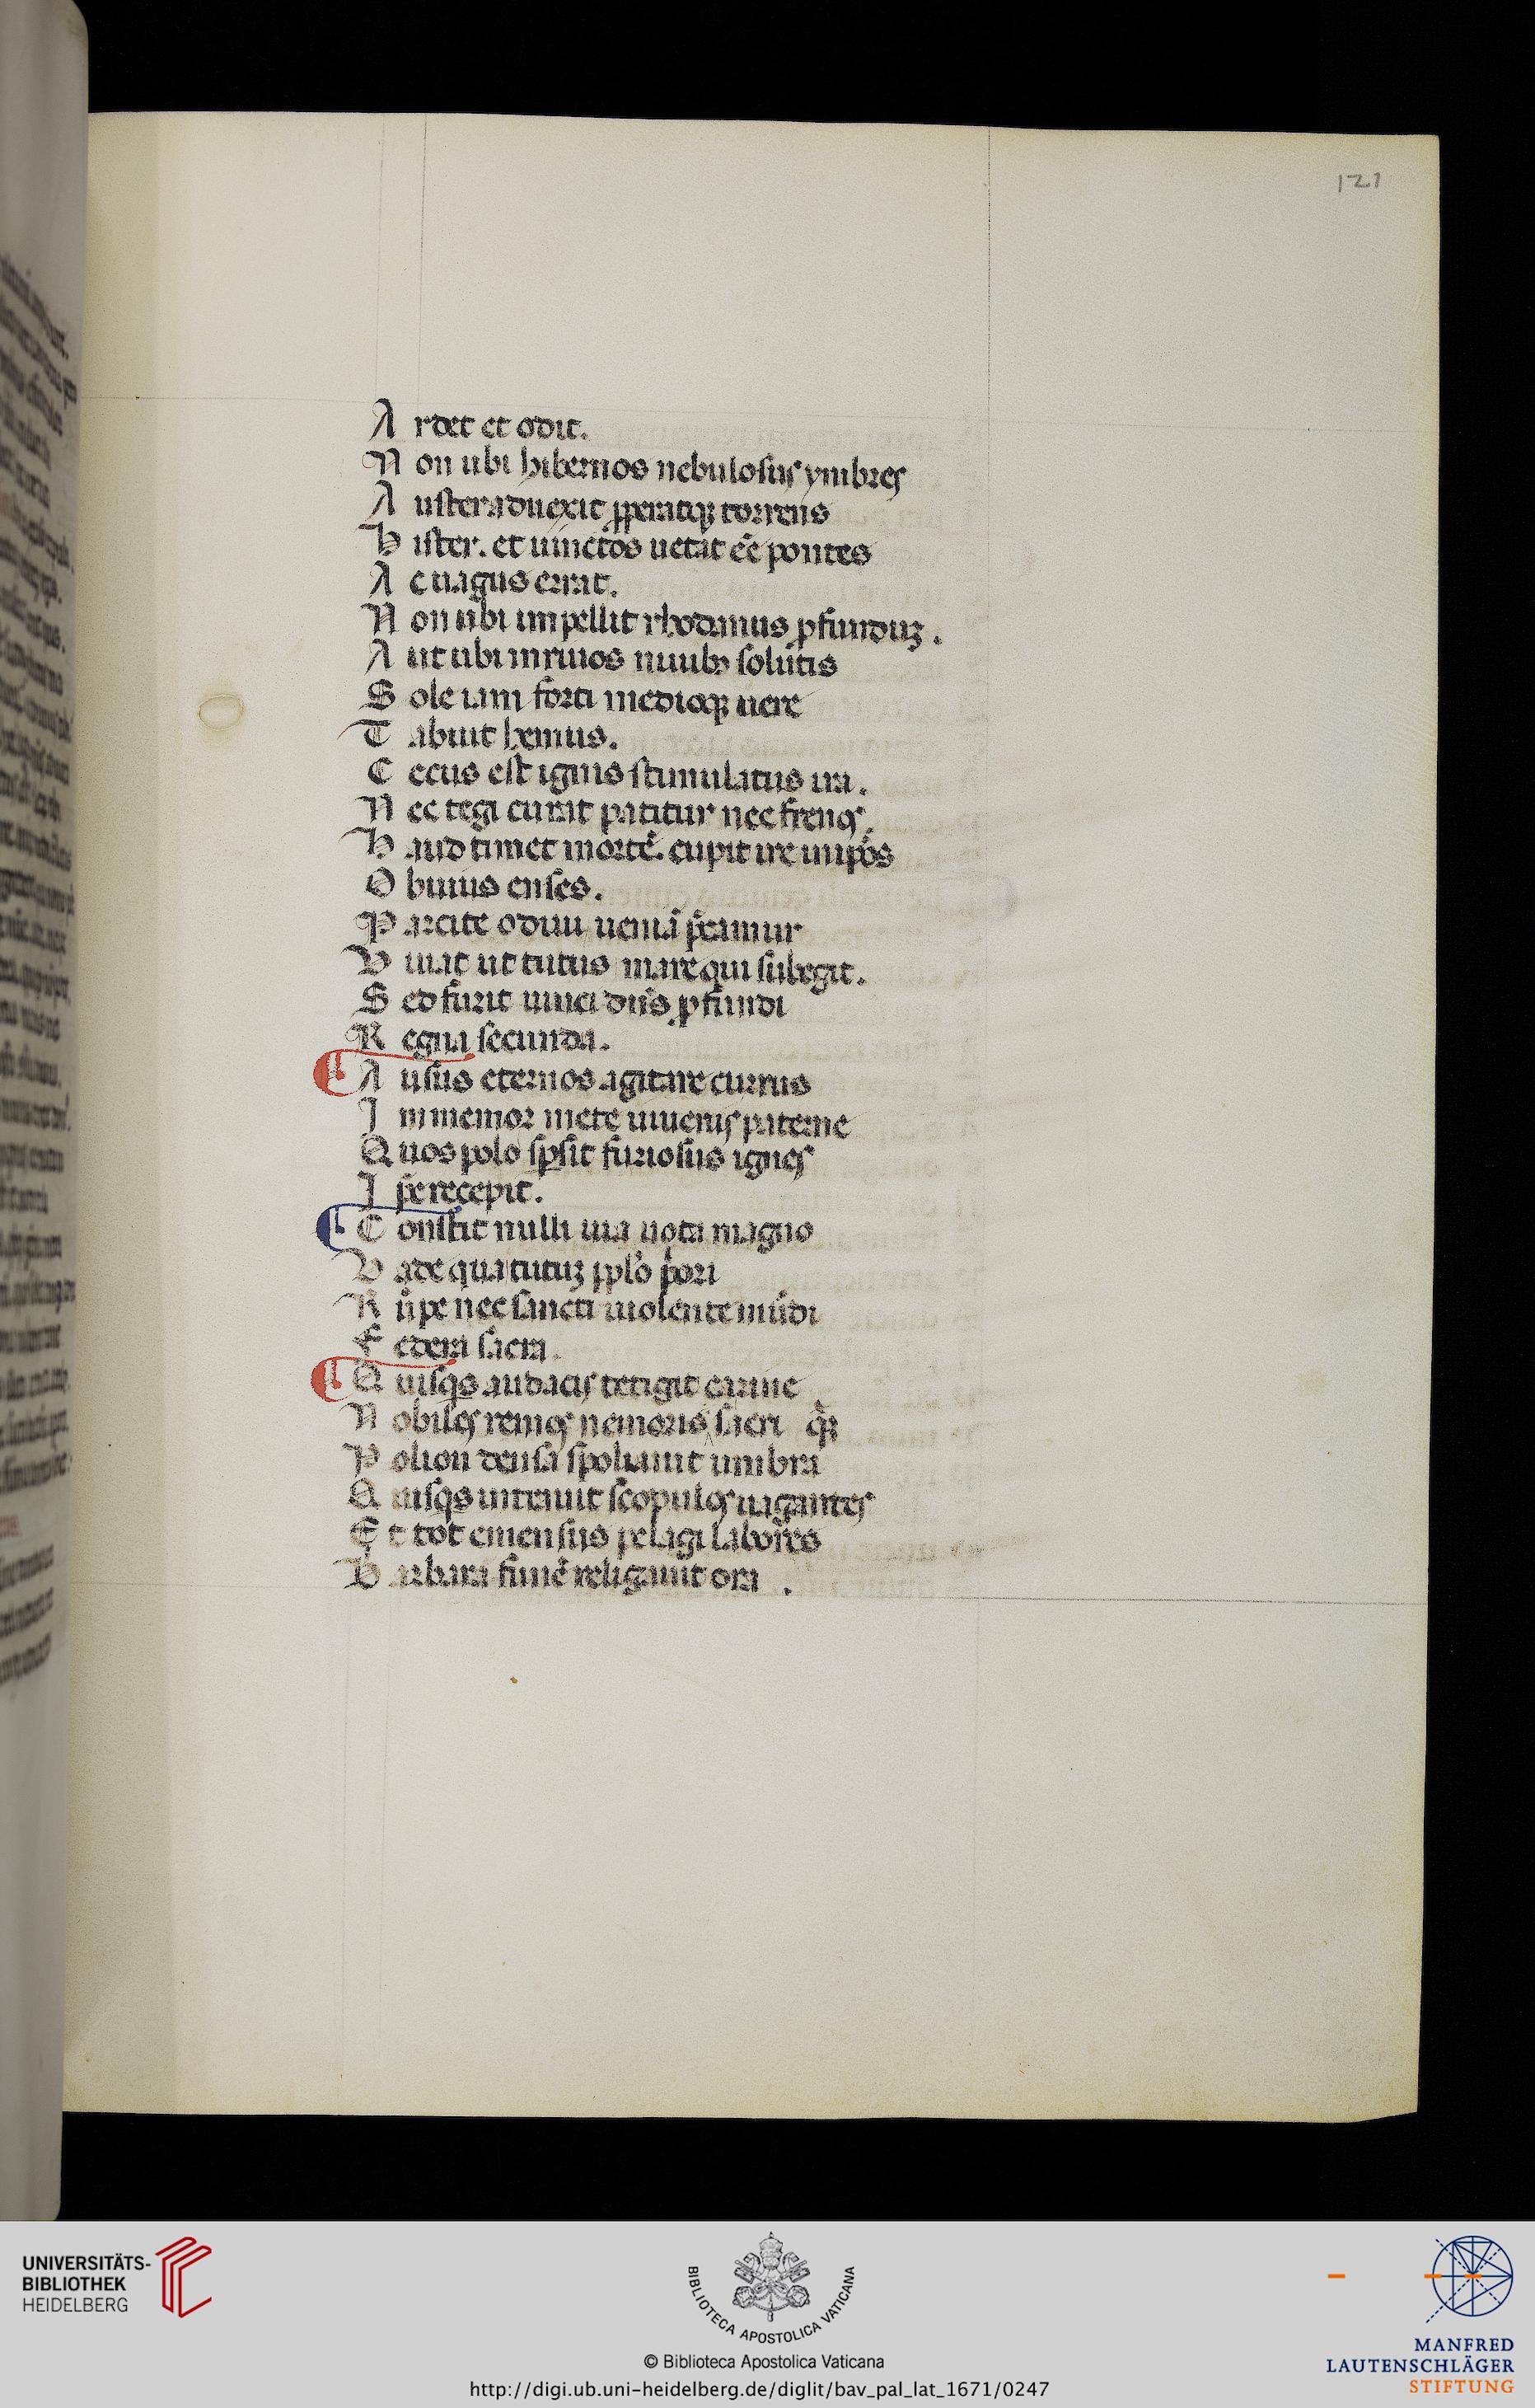 121
A rdet et odit.
N on ubi hibernos nebulosus ymbres
A uster aduexit ꝓperatqꝫ torrens
H ister. et uinctos uetat eē pontes
A c uagus errat.
N on ubi impellit rhodanus ꝓfunduꝫ.
A ut ubi inriuos niuibꝫ solutis
S ole iam forti medioqꝫ uere
T abuit hemus.
C ecus est ignis stimulatus ira.
N ec regi curat patitur nec frenos.
H aud timet mortē. cupit ire inip̄os
O buius enses.
P arcite o diui ueniā p̄camur
V iuat ut tutus mare qui subegit.
S ed furit uinci dn̄s ꝓfundi
R egna secunda.
A usus eternos agitare currus
I nmemor mete iuuenis paterne
Q uos polo sꝑsit furiosus ignes
I p̄e recepit.
C onstitit nulli uia nota magno
V ade qua tutuꝫ pplo p̄ori
R ūpe nec sancti uiolente mūdi
F edera sacra.
Q uisqs audacis tetigit carine
N obiles remos nemoris sacri qꝫ
P elion densa spoliauit umbra
Q uisqs intrauit scopulos uagantes
E t tot emensus pelagi labores
B arbara funē religauit ora.
UNIVERSITÄTS-
BIBLIOTHEK
HEIDELBERG
BIBLIOTECA APOSTOLICA VATICANA
© Biblioteca Apostolica Vaticana
http://digi.ub.uni-heidelberg.de/diglit/bav_pal_lat_1671/0247
MANFRED
LAUTENSCHLÄGER
STIFTUNG